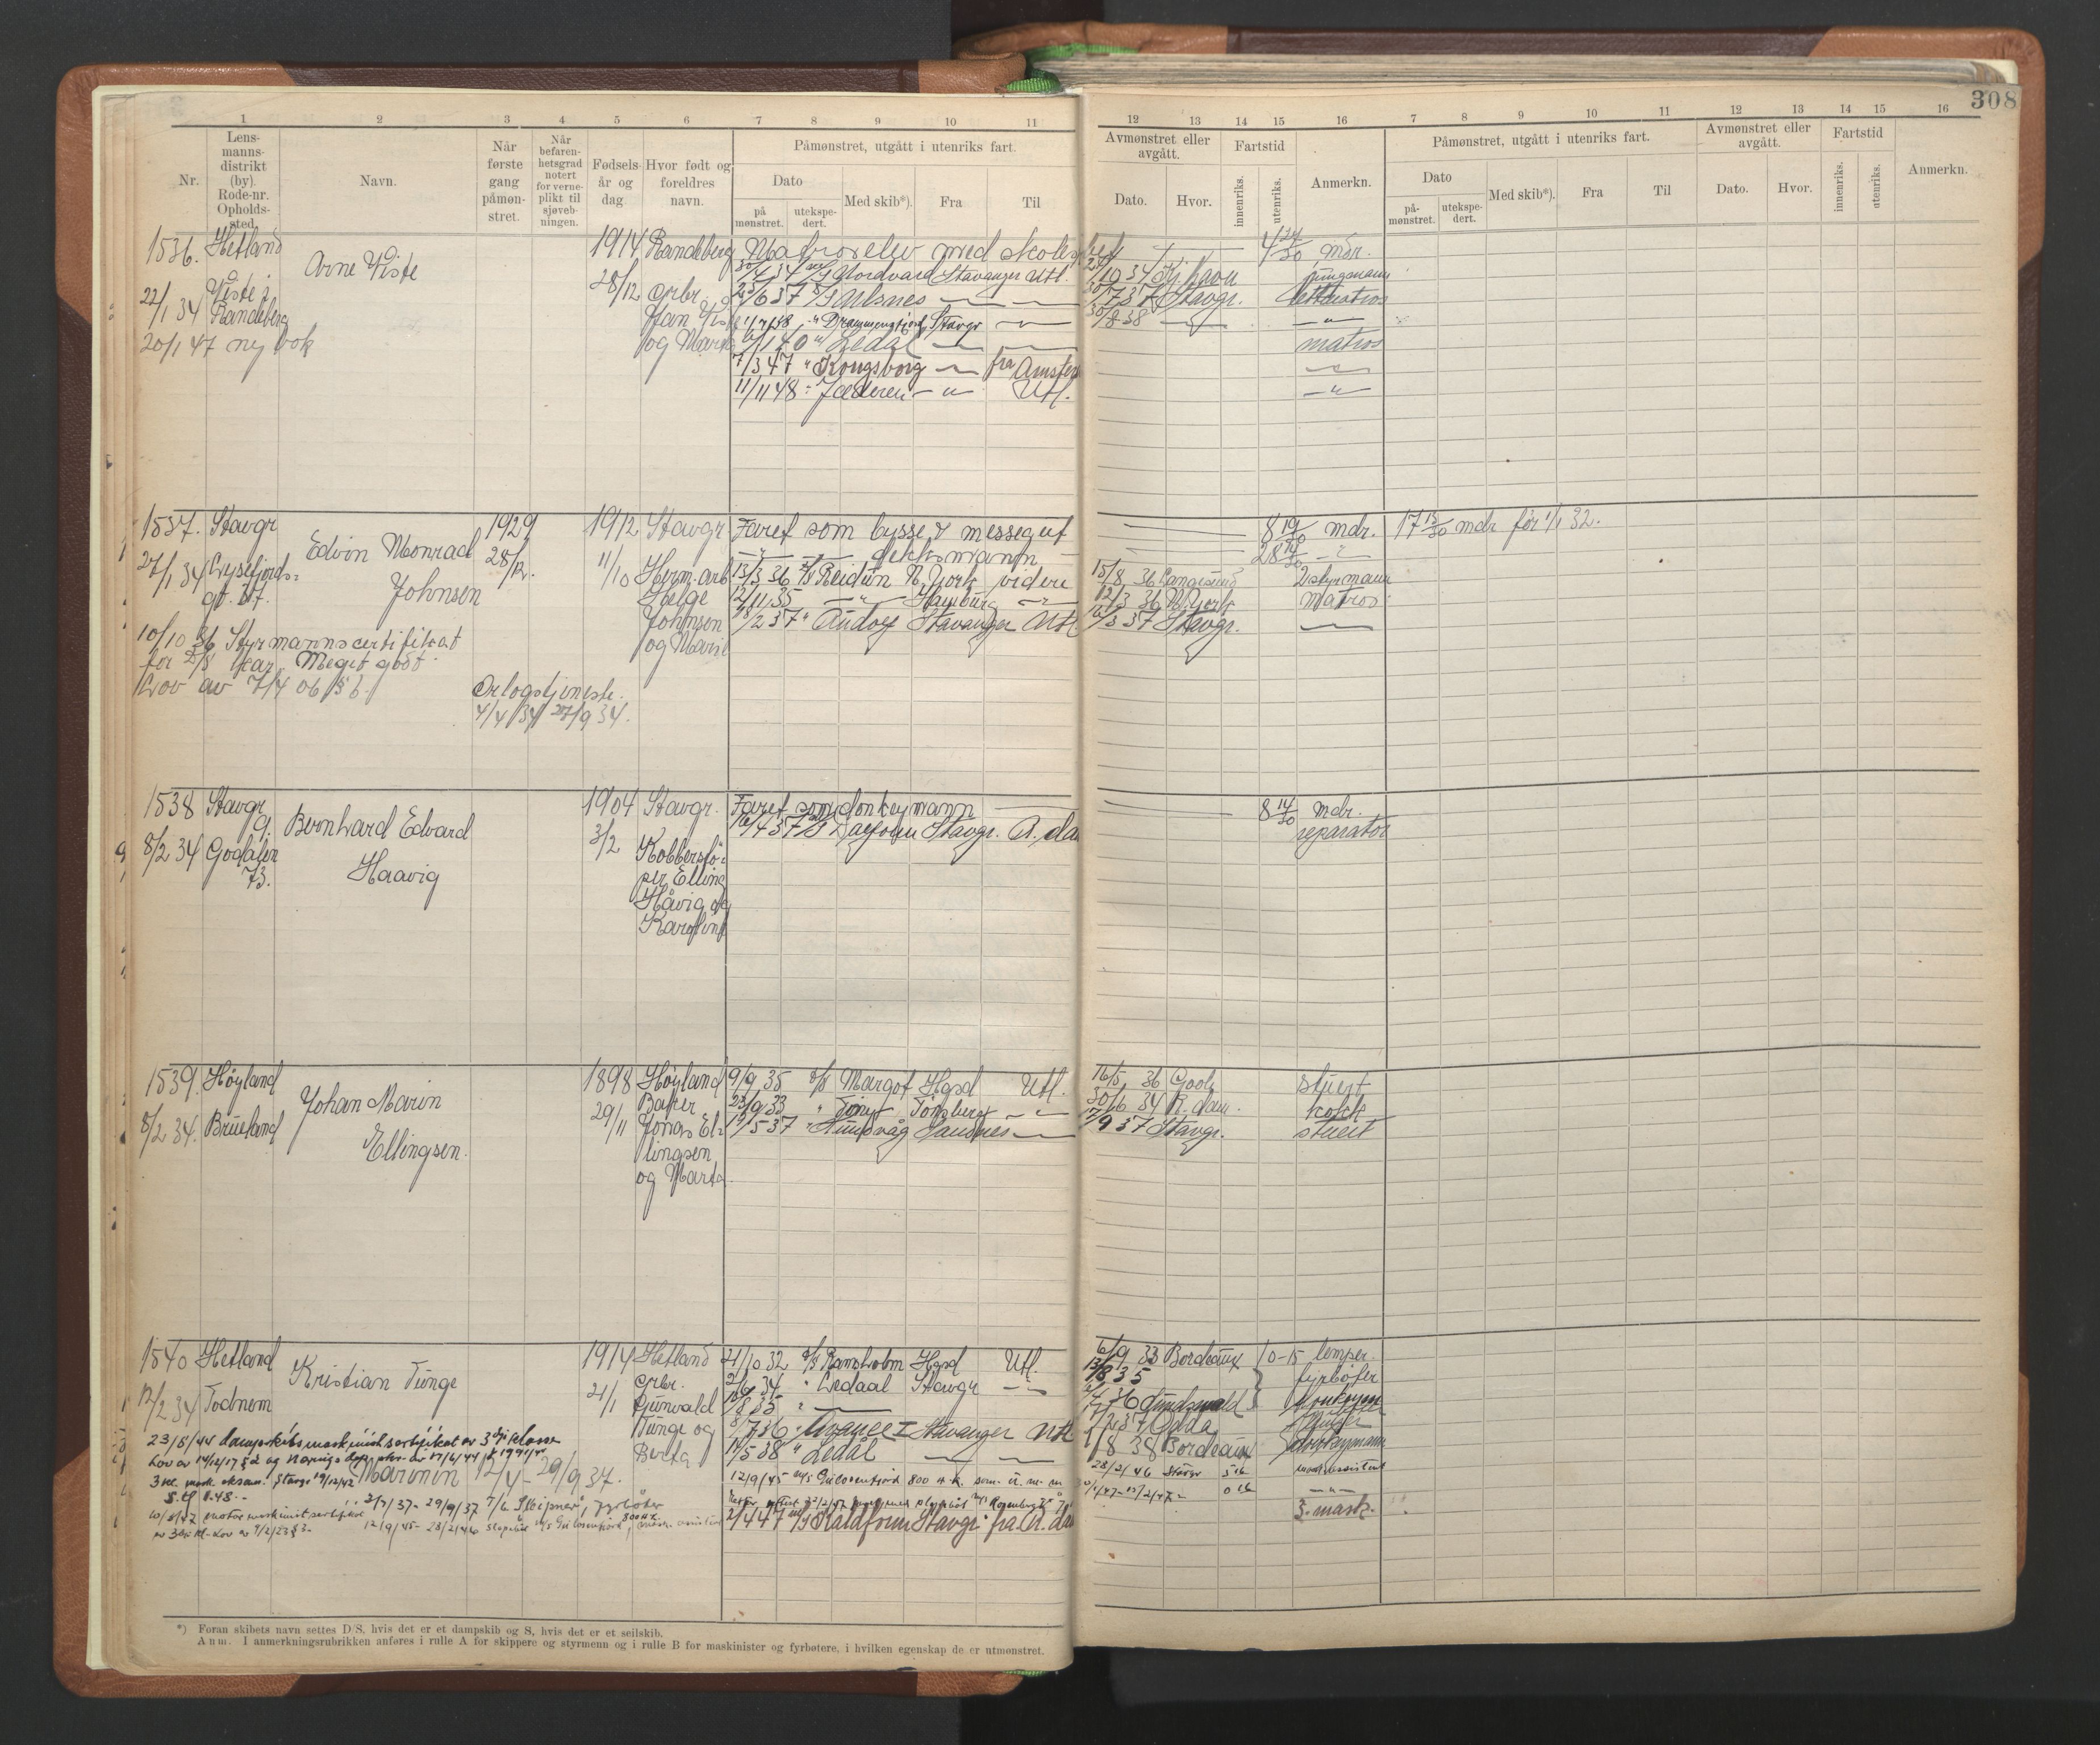 308
1 2 3 4 5 6 7 8 9 10 11
Nr.
Lens-
manns-
distrikt
(by).
Rode-nr.
Opholds-
sted.
Navn.
Når
første
gang
påmøn-
stret.
Når
befaren-
hetsgrad
notert
for verne-
plikt til
sjøveb-
ningen.
Fødsels-
år og
dag
Hvor født og
foreldres
navn.
Påmønstret, utgått i utenriks fart.
Dato
på
mønstret.
utekspe-
dert.
Med skib*).
Fra
Til
12 13 14 15 16 7 8 9 10 11 12 13 14 15 16
Avmønstret eller
avgått.
Dato.
Hvor.
Fartstid
innenriks.
utenriks.
Anmerkn.
Påmønstret, utgått i utenriks fart.
Dato
på-
mønstret.
utekspe-
dert.
Med skib*).
Fra
Til
Avmønstret eller
avgått.
Dato.
Hvor.
Fartstid
innenriks.
utenriks.
Anmerkn.
1536. Hetland
Viste i
22/1 34 Randeberg
20/1 47 ny bok
Arne Viste
1914
28/12
Randeberg
Grbr.
Jan Viste
og Marta
Matroselev med skoleskib
30/4 34 Nordvard Stavanger Utl.
25/6 37 Karlsnes
11/7 38 " Drammensfjord Stavgr
9/1 40 " Ledal
7/3 47 " Kongsborg fra Amster
11/11 48 " Jæderen Utl.
4 24/30 mdr.
10 34 Kj.havn jungmann
30/7 37 Stavgr. lettmatros
30/8 38
matros
1537. Stavgr
27/1 34 Lysefjords-
gt.
Edvin Monrad
Johnsen
1929
28/12.
1912
11/10
Stavgr
Herm.arb
Helge
Johnsen
og Marie
Faret som bysse & messegut
dekksmann
13/3 36 D/S Reidun N. York videre
12/11 35 Hamburg
18/2 37 " Andorf Stavanger Utl
10/10 36 Styrmannscertifikat
for Kar. Meget godt.
Lov av 7/4 06 § 6
Orlogstjeneste.
4/4 34 27/9 34.
8 19/30 mdr. 17 13/30 mdr før 1/1 32.
28
15/8 36 Langesund 2 styrmann
12/3 36 N. York matros
16/3 37 Stavgr.
1538 Stavgr
8/2 34 Godalen
73.
Bernhard Edvard
Haavig
1904
3/2
Stavgr.
Kobberslø-
ger Elling
Håvig og
Karoline
Faret som donkeymann
16/4 37 Stavgr. A.dam
8 14/30 mdr.
reparatør
1539. Høyland
8/2 34. Brueland
Johan Marin
Ellingsen.
1898
29/11
Høyland
Baker
Jonas El-
lingsen
og Marta
9/9 35 D/S Margot Hgsd Utl.
23/9 33 " Tønsberg
12/5 37 " Hundvåg Sandnes
16/5 36 Goole stuert
30/6 34 R.dam. kokk
17/9 37 Stavgr. stuert
1540 Hetland
12/2 34 Todnem
Kristian Tunge
1914
21/1
Hetland
Grbr.
Gunvald
Tunge og
Berta
21/10 32 D/S Ramsholm Hgsd Utl.
21/6 34 " Ledaal Stavgr
8 35 "
8/7 36 Stavanger Utl
14/5 38 " Ledål
12/9/45 - M/S Gulosenfjord 800 H.K. som
2/4 47 M/S Raldfonn Stavgr. fra A.dam
23/5/44 dampskibsmaskinistsertifikat av 3dje klasse
3 kl. mask. eksam. Stavgr 19/12/42
Marinen 12/4 - 29/9 37.
10/6/47 motormaskinistsertifikat
av 3dje kl. Lov av 9/2/23 § 3.
2/7/37 - 29/9/37 T/b. Sleipner, fyrbøter
12/9/45 - 28/2/46 M/S Gulosenfjord, 800 H.K.
6/9 33 Bordeaux 10-15 lemper
13/8 35 fyrbøter
36
7/2 37 Odda
8 38 Bordeaux donkeymann
28/2/46 Stavgr 5 16 maskinassistent
0 16
3. mask.
*) Foran skibets navn settes D/S, hvis det er et dampskib og S, hvis det er et seilskib.
Anm. I anmerkningsrubrikken anføres i rulle A for skippere og styrmenn og i rulle B for maskinister og fyrbøtere, i hvilken egenskap de er utmønstret.